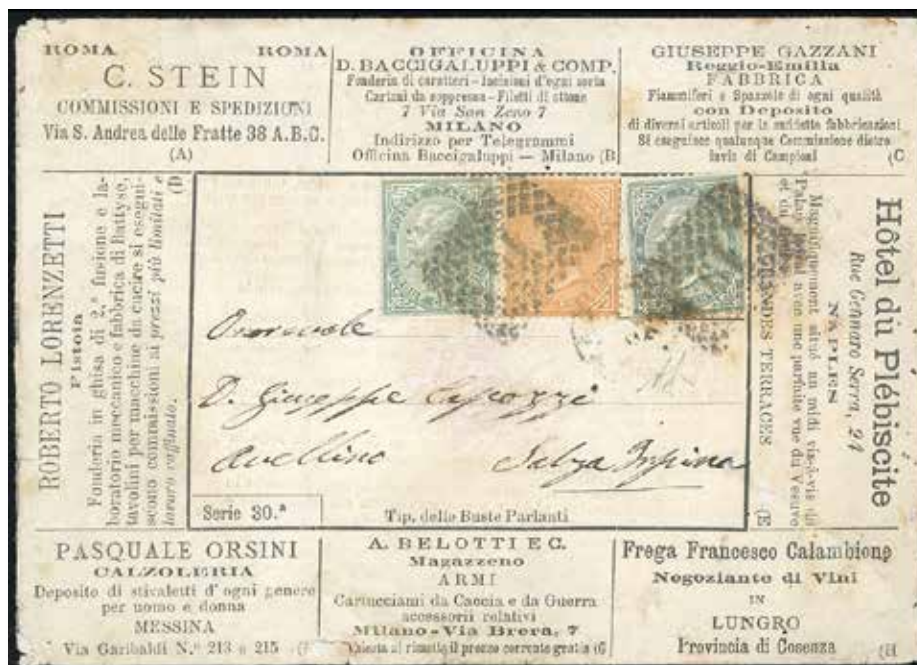 ROMA ROMA
C. STEIN
COMMISSIONI E SPEDIZIONI
Via S. Andrea delle Fratte 38 A.B.C.
(A)
OFFICINA
D. BACCIGALUPPI & COMP.
Fonderia di caratteri – Incisioni d'ogni sorta
Cartoni da soppressa – Filetti di ottone
7 Via San Zeno 7
MILANO
Indirizzo per Telegrammi
Officina Baccigaluppi — Milano (B
GIUSEPPE GAZZANI
Reggio-Emilia
FABBRICA
Fiammiferi e Spazzole di ogni qualità
con Deposito
di diversi articoli per le suddette fabbricazioni
Si eseguisce qualunque Commissione dietro
invio di Campioni (C
ROBERTO LORENZETTI
Pistoia
Fonderia in ghisa di 2.ª fusione e la-
boratorio meccanico e fabbrica di Battyse,
tavolini per macchine da cucire si esegui-
scono commissioni ai prezzi più limitati e
lavoro raffinato. (D
Onorevole
D. Giuseppe Capozzi
Avellino Salza Irpina
Serie 30.ª
Tip. delle Buste Parlanti
Hôtel du Plébiscite
Rue Gennaro Serra, 24
NAPLES
Magnifiquement situé un midi vis-à-vis du
Palais avec une parfaite vue du Vesuve
et du
GRANDES TERRACES (E
PASQUALE ORSINI
CALZOLERIA
Deposito di stivaletti d'ogni genere
per uomo e donna
MESSINA
Via Garibaldi N.º 213 e 215
A. BELOTTI E C.
Magazzeno
ARMI
Cartucciami da Caccia e da Guerra
accessorii relativi
Milano - Via Brera, 7
si rimette il prezzo corrente gratis (G
Frega Francesco Calambione
Negoziante di Vini
IN
LUNGRO
Provincia di Cosenza (H